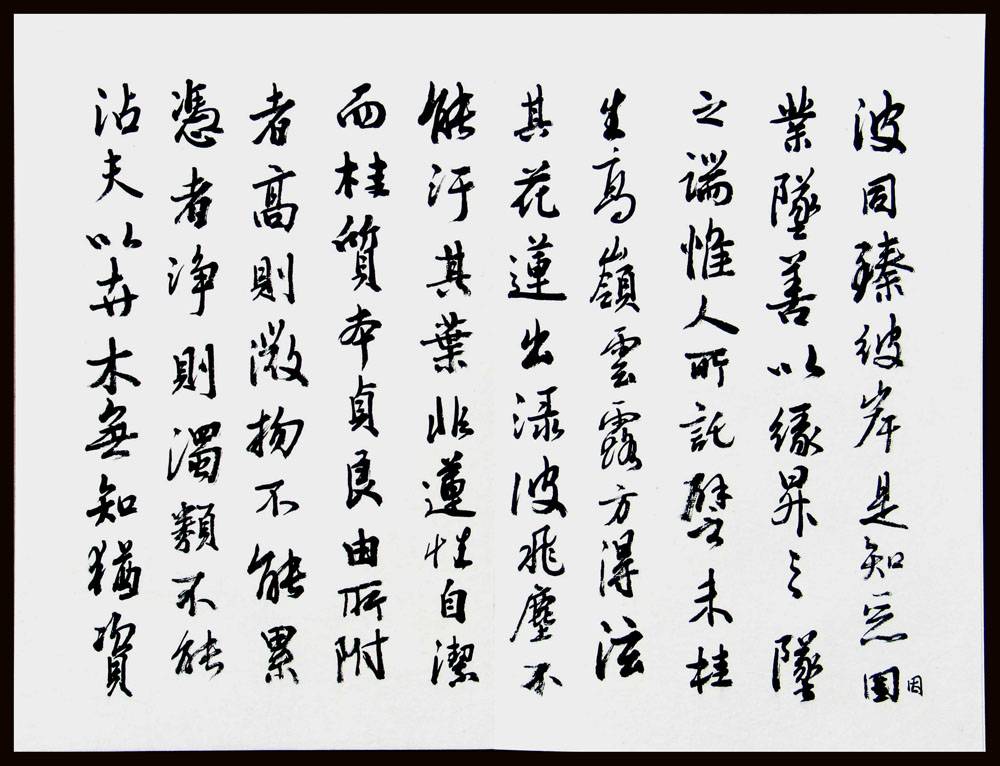 波同臻彼岸是知惡因
業墜善以緣昇々墜
之端惟人所託譬未桂
生高嶺雲露方得泫
其花蓮出淥波飛塵不
能汙其葉非蓮性自潔
而桂質本貞良由所附
者高則微物不能累
憑者浄則濁類不能
沾夫以卉木無知猶資